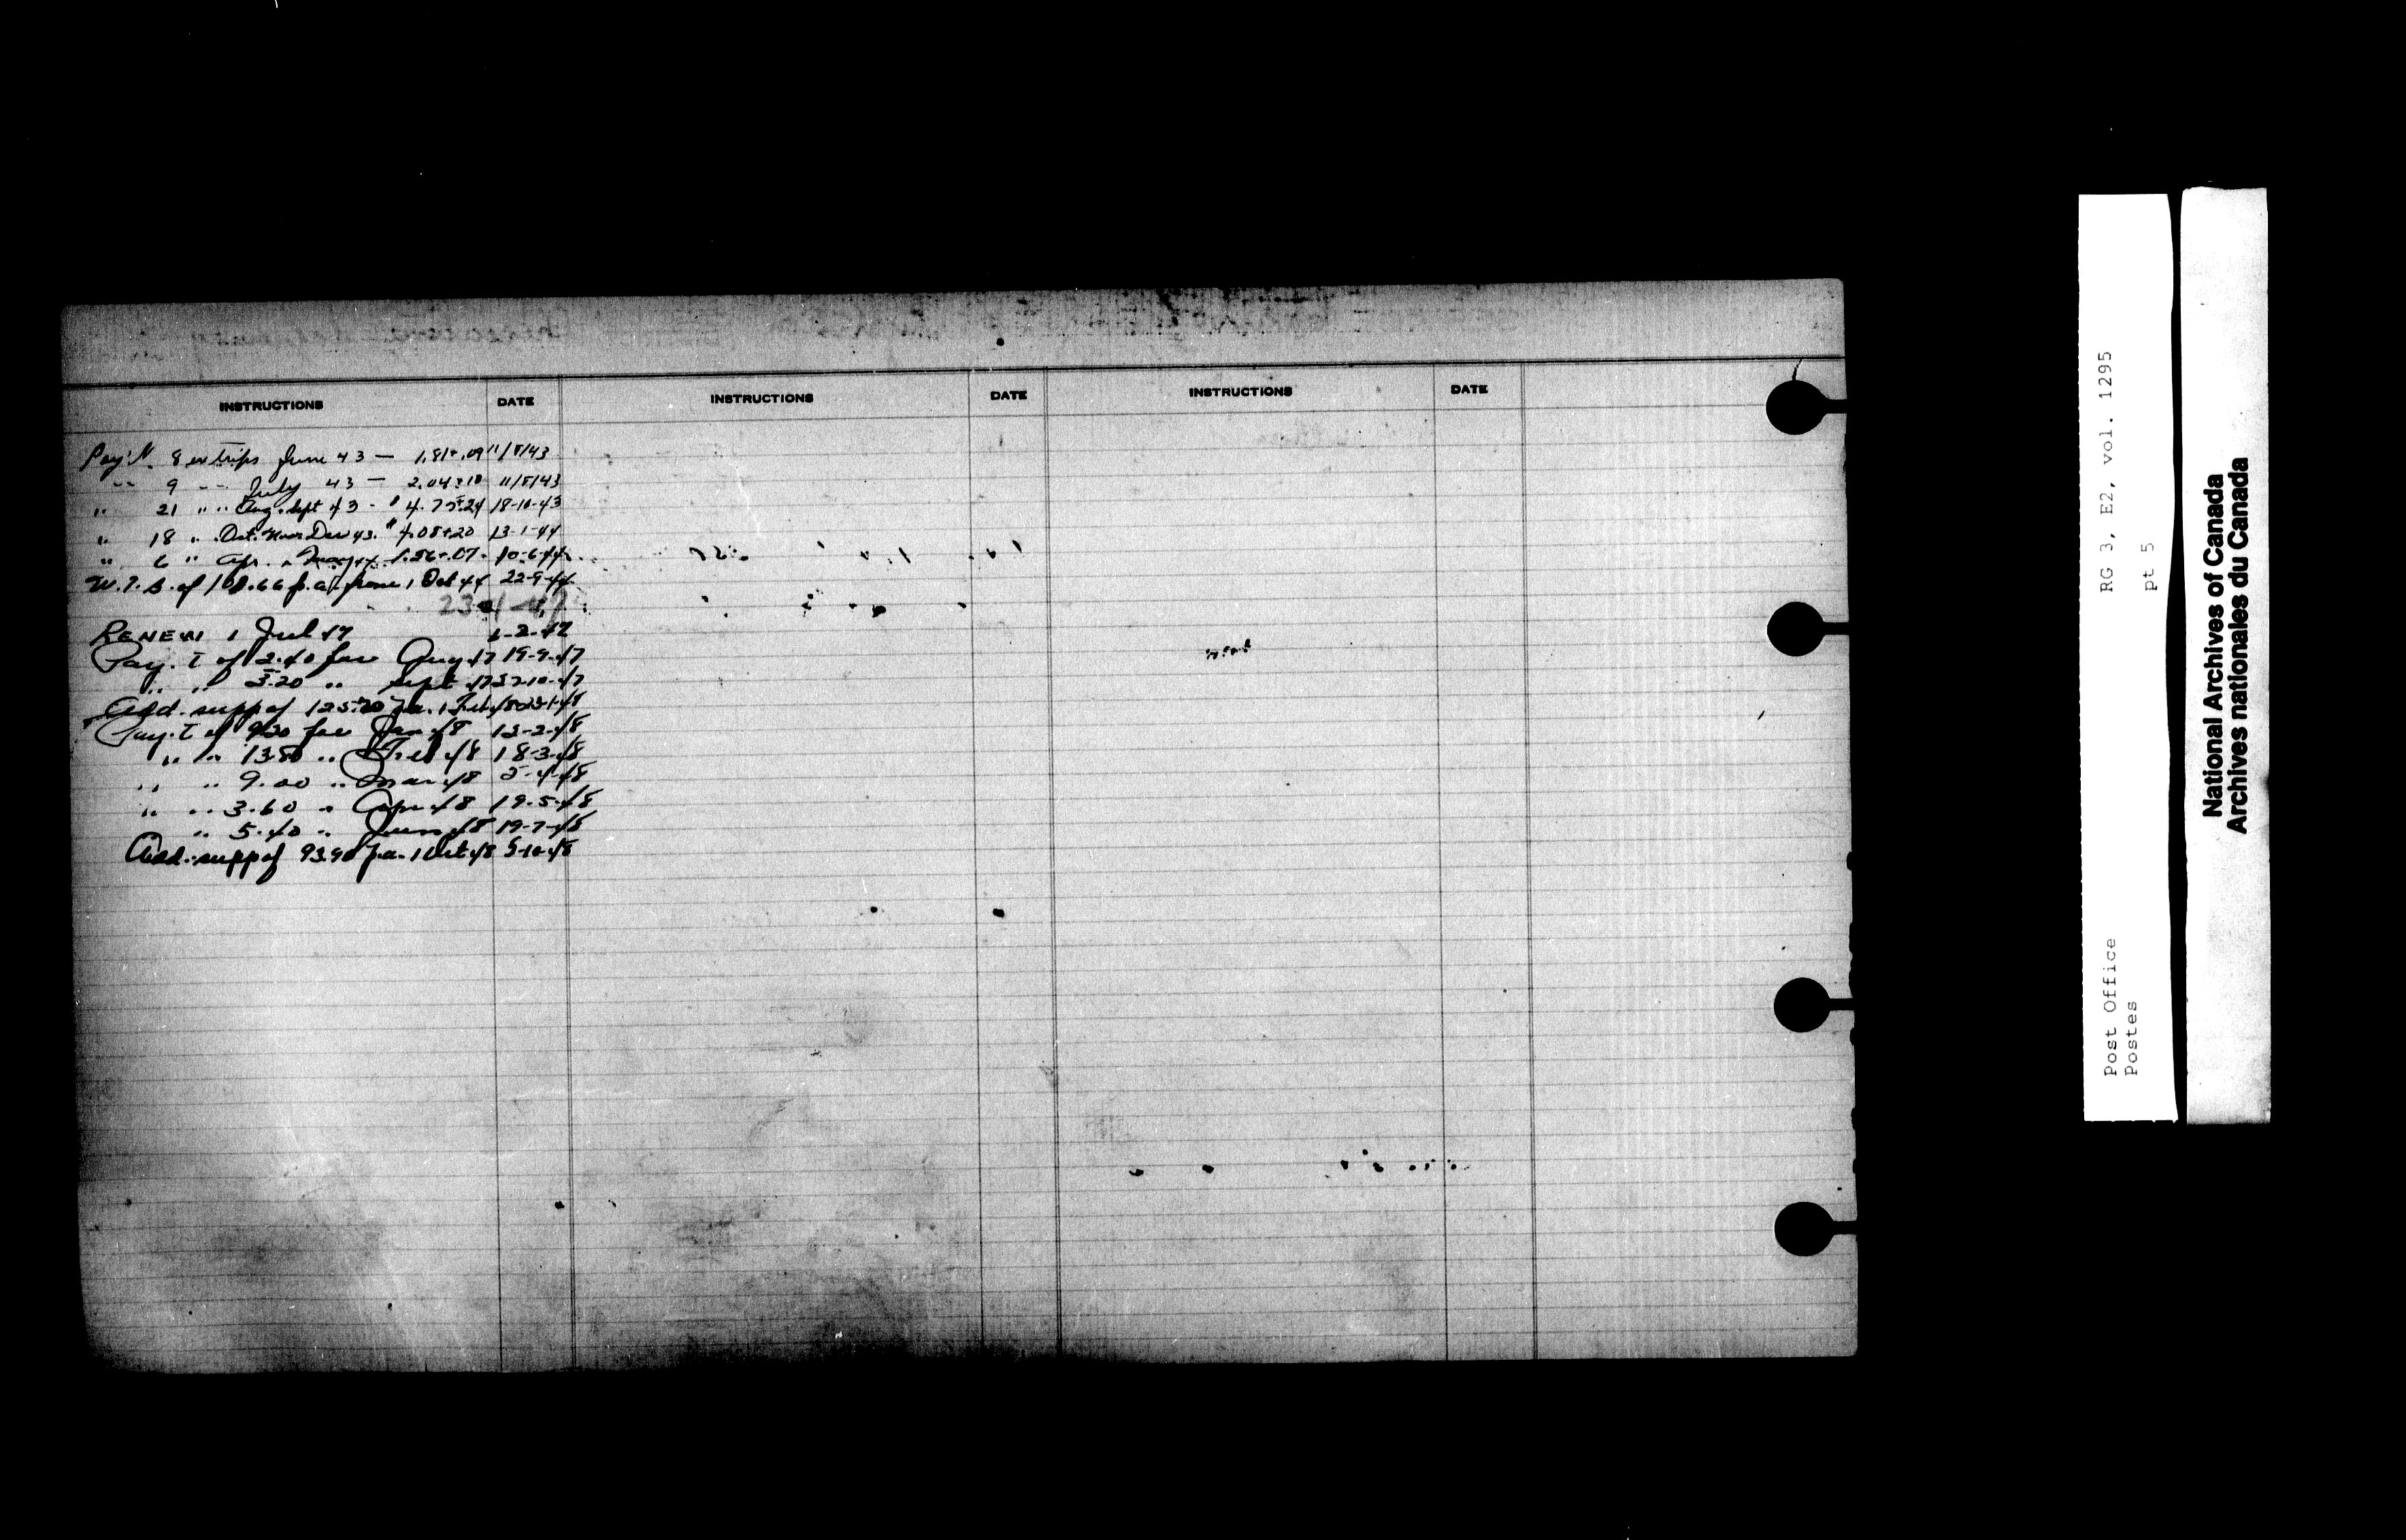 INSTRUCTIONS DATE INSTRUCTIONS DATE INSTRUCTIONS DATE
Pay't. 8 ex trips June 43 — 1.81+.09 11/8/43
" 9 " July 43 — 2.04+10 11/8/43
" 21 " " Aug. Sept 43 - $4.75+24 18-10-43
" 18 " Oct. Nov. Dec 43. $4.08+20 13-1-44
" 6 " Apr. " May 44 1.36+.07 - 10-6-44
W.T.B. of 108.66 p.a. from 1 Oct 44 22-9-44
23-1-47
RENEW 1 Jul 47 6-2-47
Pay. T of 2.40 for Aug 47 19-9-47
" " 3.20 " Sept 47 -10-47
Add. supp of 125.20 p.a. 1 Feb 48 -1-48
Pay. T of 9.20 for Jan 48 12-2-48
" " 13.80 " Feb 48 18-3-48
" " 9.00 " Mar 48 5-4-48
" " 3.60 " Apr 48 19-5-48
" 5.40 " June 48 19-7-48
Add. supp of 93.90 p.a. 1 Oct 48 5-10-48
Post Office
Postes
RG 3, E2, vol. 1295
pt 5
National Archives of Canada
Archives nationales du Canada